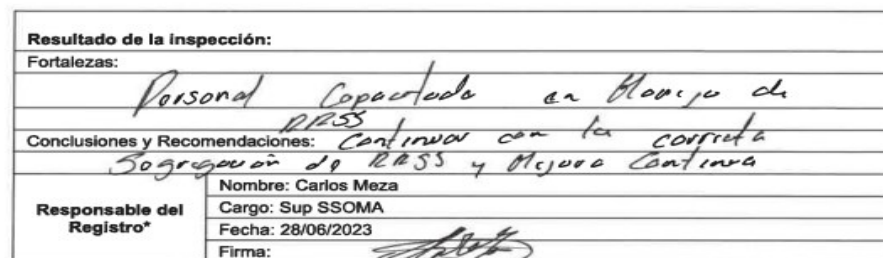 Resultado de la inspección:
Fortalezas:
Personal Capacitado en Manejo de
RRSS
Conclusiones y Recomendaciones: Continuar con la correcta
Segregación de RRSS y Mejora Continua
Responsable del
Registro*
Nombre: Carlos Meza
Cargo: Sup SSOMA
Fecha: 28/06/2023
Firma: